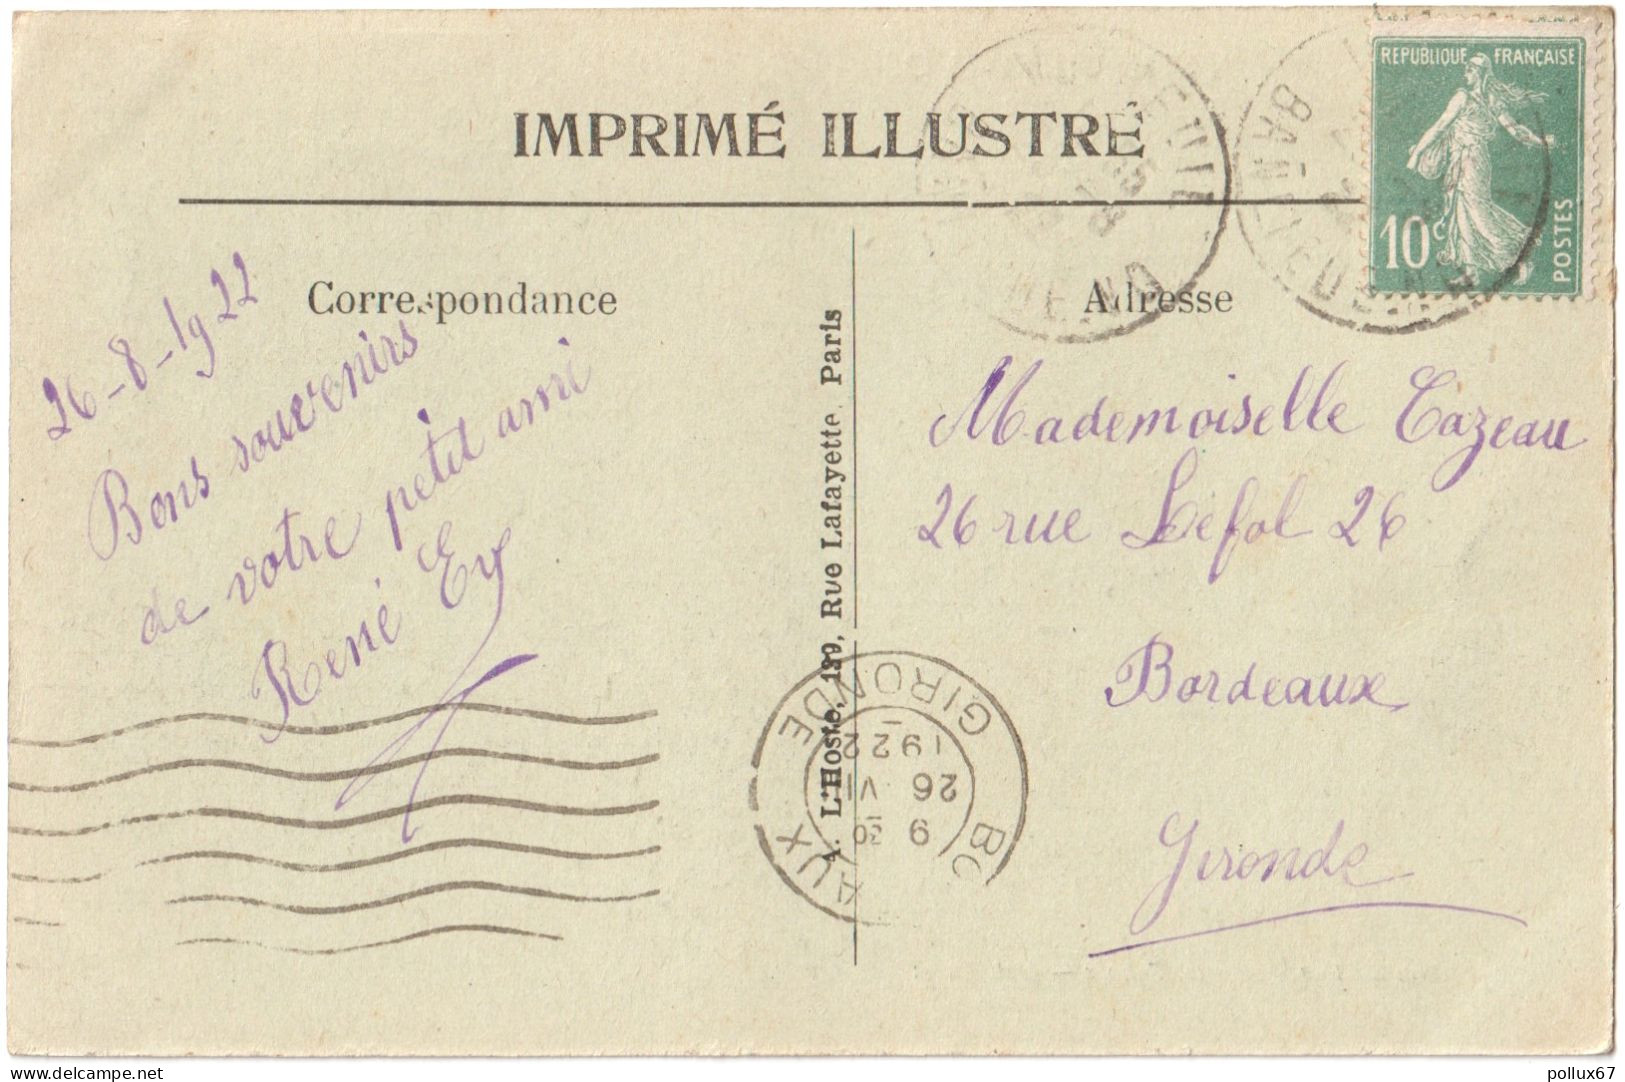 IMPRIMÉ ILLUSTRÉ
REPUBLIQUE FRANÇAISE
10c
POSTES
Correspondance
Adresse
26-8-1922
Bons souvenirs
de votre petit ami
René Ey
A. L'Hoste, 139, Rue Lafayette, Paris
Mademoiselle Cazeau
26 rue Lefol 26
Bordeaux
Gironde
GIRONDE
1922
26 VI
9 30
delcampe.net
pollux67